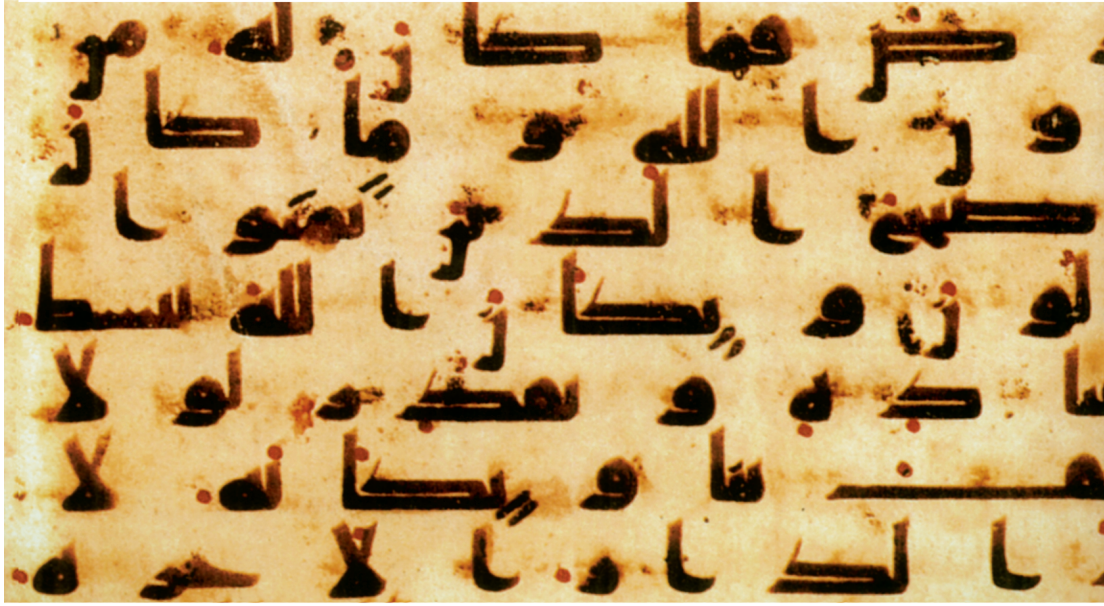 فما كا ن له من
و ن ا لله و ما كا ن
صبح ا لذ ين تمنو ا
لو ن و يكا ن ا لله يبسط
د ه و يقد ر لو لا
ف بنا و يكا نه لا
ا لد ا ر ا لا خر ه